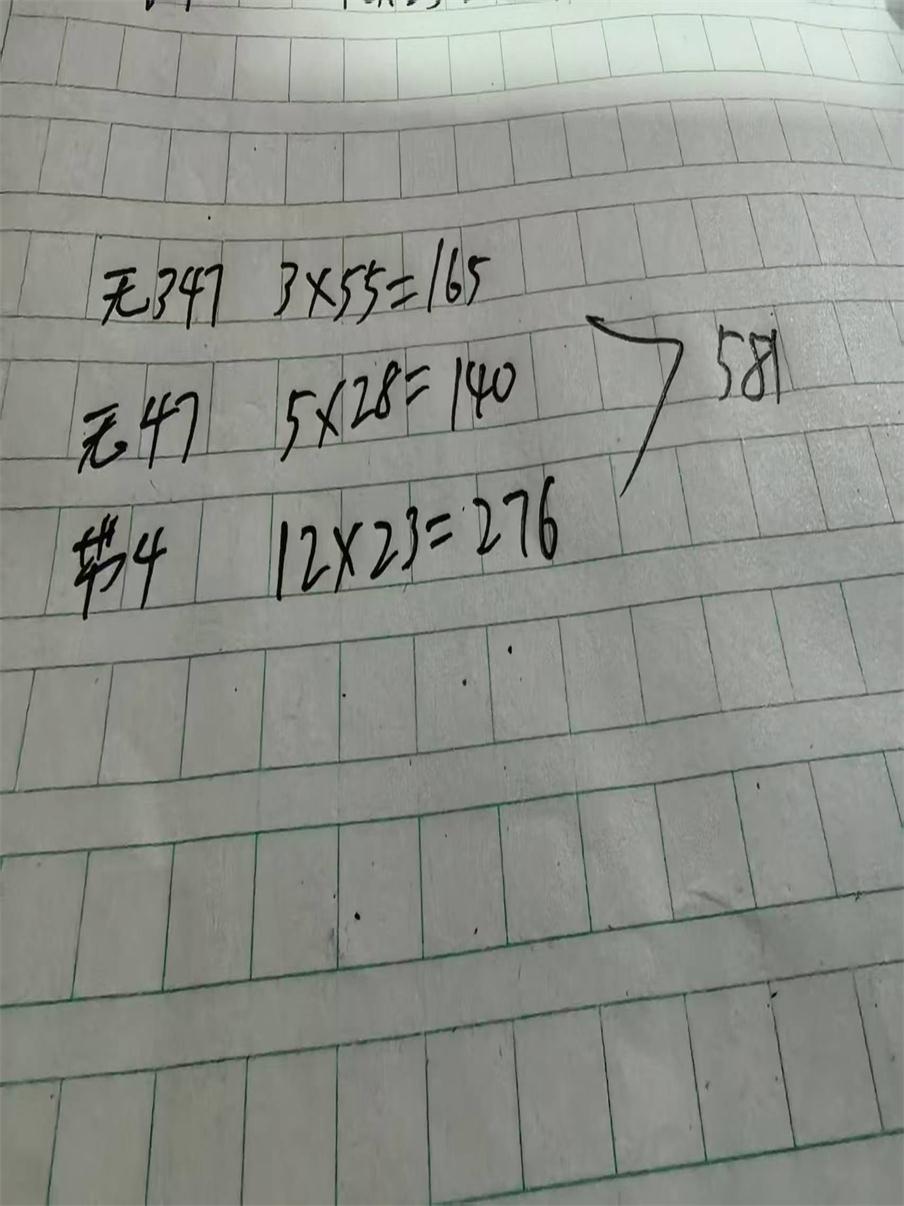 无347 3×55=165
无47 5×28=140
581
带4 12×23=276